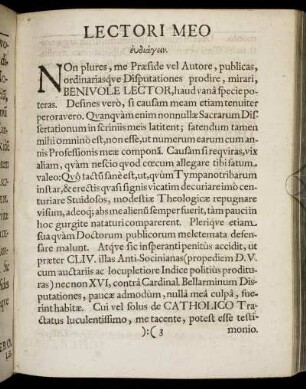 LECTORI MEO
εὐδιάγειν.
NOn plures, me Præside vel Autore, publicas,
ordinariasqve Disputationes prodire, mirari,
BENIVOLE LECTOR, haud vanâ specie po-
teras. Desines verò, si causam meam etiam tenuiter
peroravero. Qvanqvàm enim nonnullæ Sacrarum Dis-
sertationum in scriniis meis latitent; fatendum tamen
mihi omninò est, non esse, ut numerum earum cum an-
nis Professionis meæ componâ. Causam si reqviras, vix
aliam, qvàm nescio qvod cœcum allegare tibi fatum,
valeo: Qvô factô sanè est, ut, qvùm Tympanotribarum
instar, & erectis qvasi signis vicatim decuriare imò cen-
turiare Studiosos, modestiæ Theologicæ repugnare
visum, adeoq; abs me alienū semper fuerit, tàm pauci in
hoc gurgite natauri comparuerint. Pleriqve etiam,
sua qvàm Doctorum publicorum meletemata defen-
sare malunt. Atqve sic insperanti penitùs accidit, ut
præter CLIV. illas Anti-Socinianas (propediem D.V.
cum auctariis ac locupletiore Indice politiùs prodit-
ras) nec non XVI, contrâ Cardinal. Bellarminum Dis-
putationes, paucæ admodùm, nullâ meâ culpâ, fue-
rint habitæ. Cui vel solus de CATHOLICO Tra-
ctatus luculentissimo, me tacente, potest esse testi-
):( 3 monio.